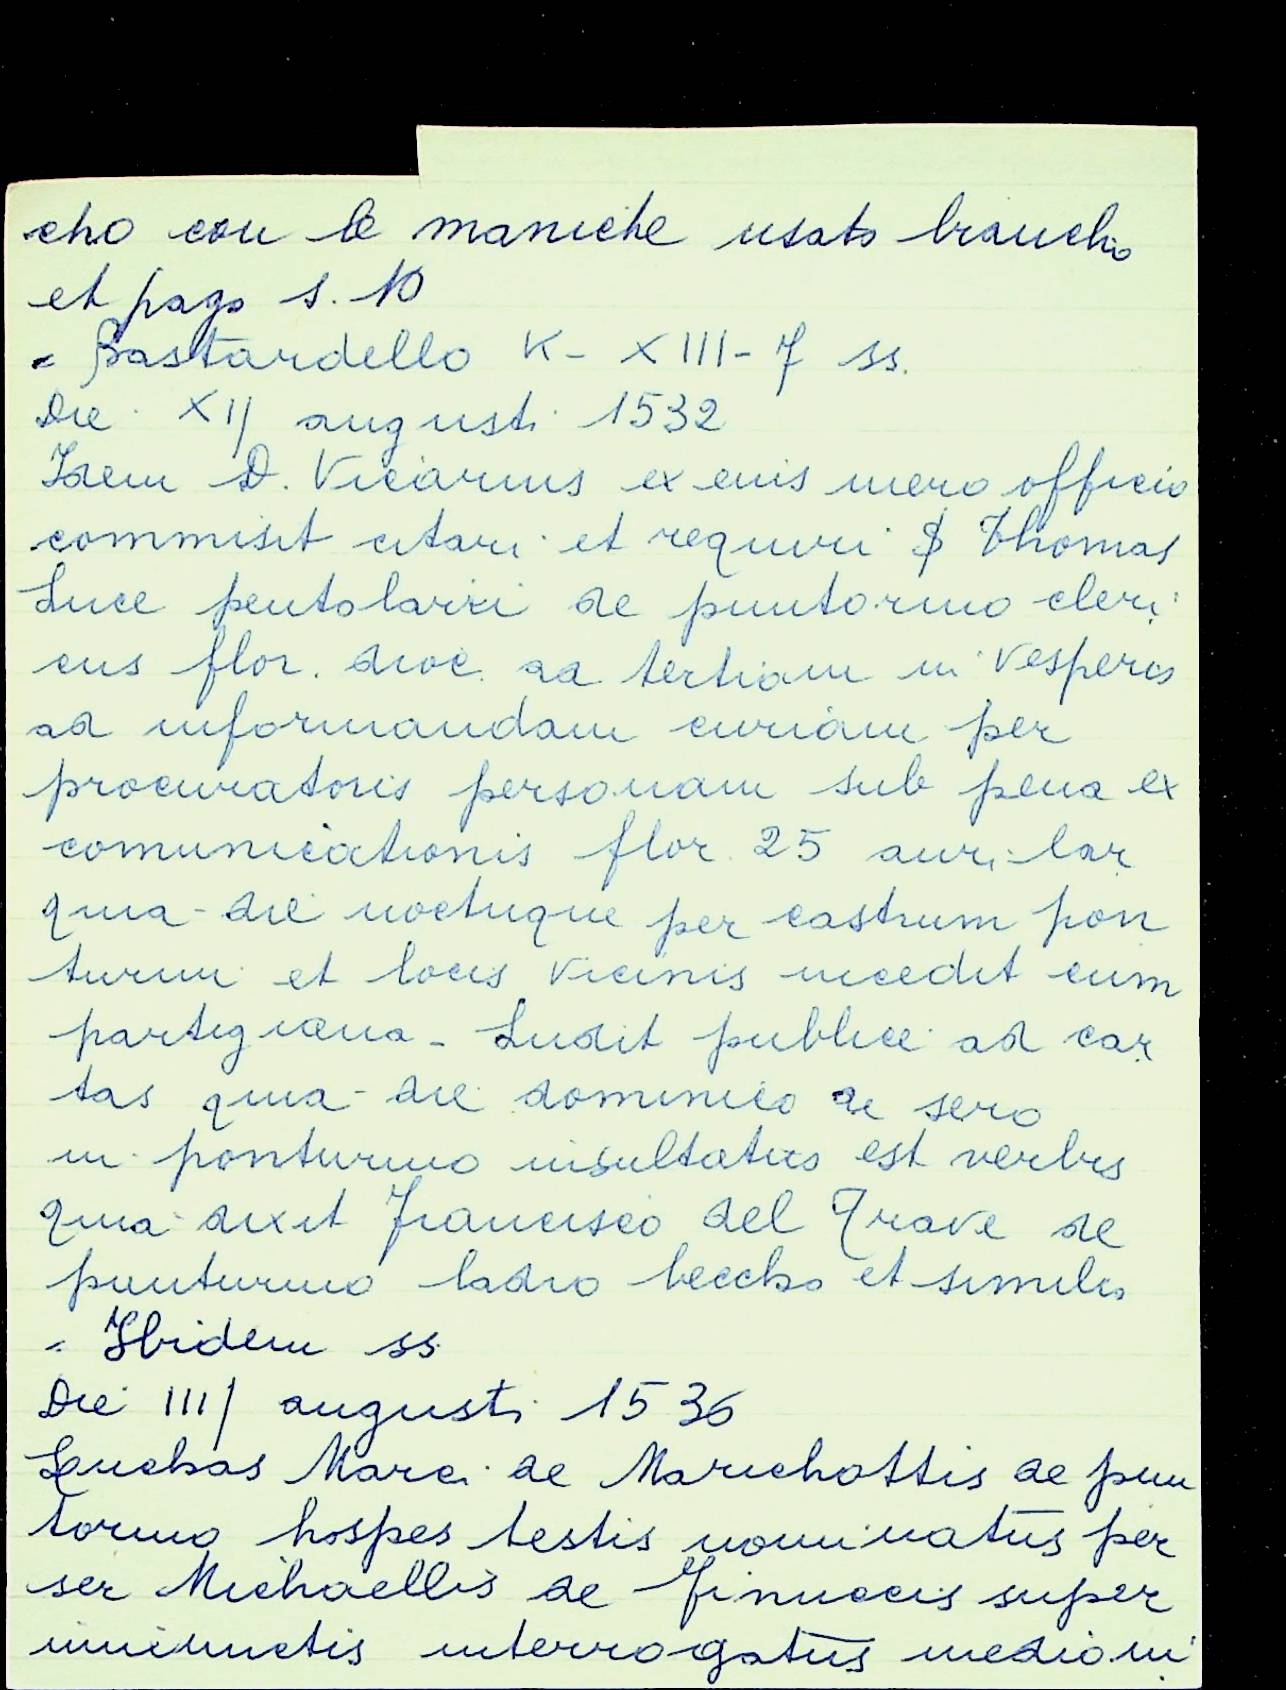 cho con le maniche usato biancho
et pago s. 10
= Bastardello K - XIII - 7 ss.
Die XIJ augusti 1532
Idem D. Vicarius ex eius mero officio
commisit citari et requiri Thomas
Luce pentolarii de puntormo cleri
cus flor. dioc. ad tertiam in Vesperis
ad informandam curiam per
procuratoris personam sub pena ex
comunicationis flor. 25 auri lar
quia die noctuque per castrum pon
turmi et locis vicinis incedit cum
partigiana - Ludit publice ad car
tas quia die dominico de sero
in ponturmo insultatus est verbis
quia dixit Francisco del Grave de
punturmo ladro beccho et similia
= Ibidem ss.
Die IIIJ augusti 1536
Luchas Marci de Marichottis de pun
tormo hospes testis nominatus per
ser Michaellis de Finuccis super
interrogatus medio iu